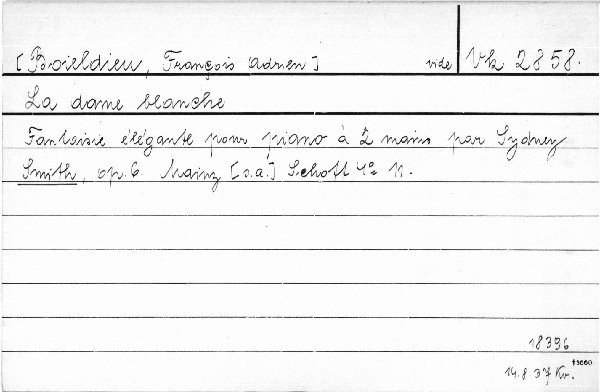 [Boieldieu, François Adrien] vide Vk 2858.
La dame blanche
Fantaisie élégante pour piano à 2 mains par Sydney
Smith, op. 6. Mainz [s.a.] Schott 4º 11.
18396
†3000
14.8.37 Kr.